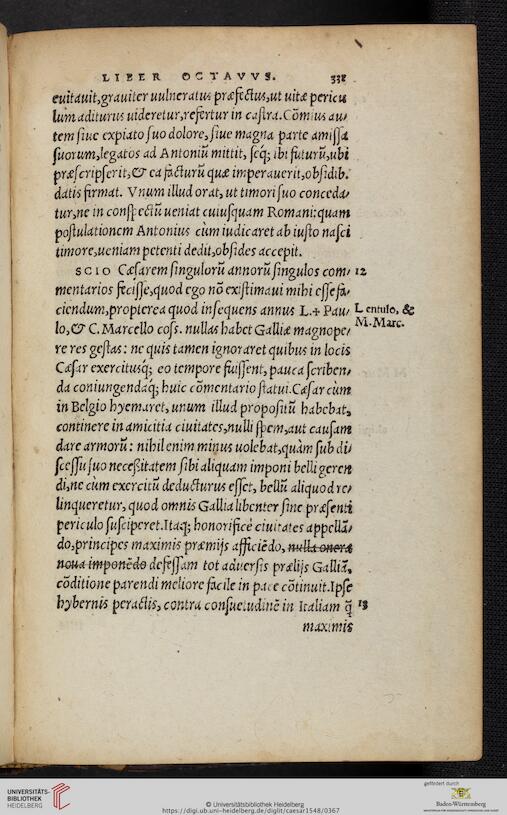 LIBER OCTAVVS. 338
euitauit,grauiter uulneratus præfectus,ut uitæ pericu
lum aditurus uideretur,refertur in castra.Cõmius au-
tem siue expiato suo dolore, siue magna parte amissa
suorum,legatos ad Antoniũ mittit, seq́; ibi futurũ,ubi
præscripserit,& ea facturũ quæ imperauerit,obsidib.
datis firmat. Vnum illud orat, ut timori suo conceda-
tur,ne in conspectũ ueniat cuiusquam Romani:quam
postulationem Antonius cùm iudicaret ab iusto nasci
timore,ueniam petenti dedit,obsides accepit.
SCIO Cæsarem singulorũ annorũ singulos com- 12
mentarios fecisse,quod ego nõ existimaui mihi esse fa-
ciendum,propterea quod insequens annus L.+ Pau- Lentulo, &
lo,& C. Marcello coss. nullas habet Galliæ magnope- M. Marc.
re res gestas: ne quis tamen ignoraret quibus in locis
Cæsar exercitusq́; eo tempore fuissent, pauca scriben-
da coniungendaq́; huic cõmentario statui.Cæsar cùm
in Belgio hyemaret, unum illud propositũ habebat,
continere in amicitia ciuitates,nulli spem,aut causam
dare armorũ: nihil enim minus uolebat,quàm sub di-
scessu suo necessitatem sibi aliquam imponi belli geren
di,ne cùm exercitũ deducturus esset, bellũ aliquod re-
linqueretur, quod omnis Gallia libenter sine præsenti
periculo susciperet.Itaq; honorificè ciuitates appellã-
do,principes maximis præmijs afficiẽdo, nulla onera
noua imponẽdo defessam tot aduersis prælijs Galliã,
cõditione parendi meliore facile in pace cõtinuit.Ipse
hybernis peractis, contra consuetudinẽ in Italiam q̃ 13
maximis
UNIVERSITÄTS-
BIBLIOTHEK
HEIDELBERG
© Universitätsbibliothek Heidelberg
https://digi.ub.uni-heidelberg.de/diglit/caesar1548/0367
gefördert durch
Baden-Württemberg